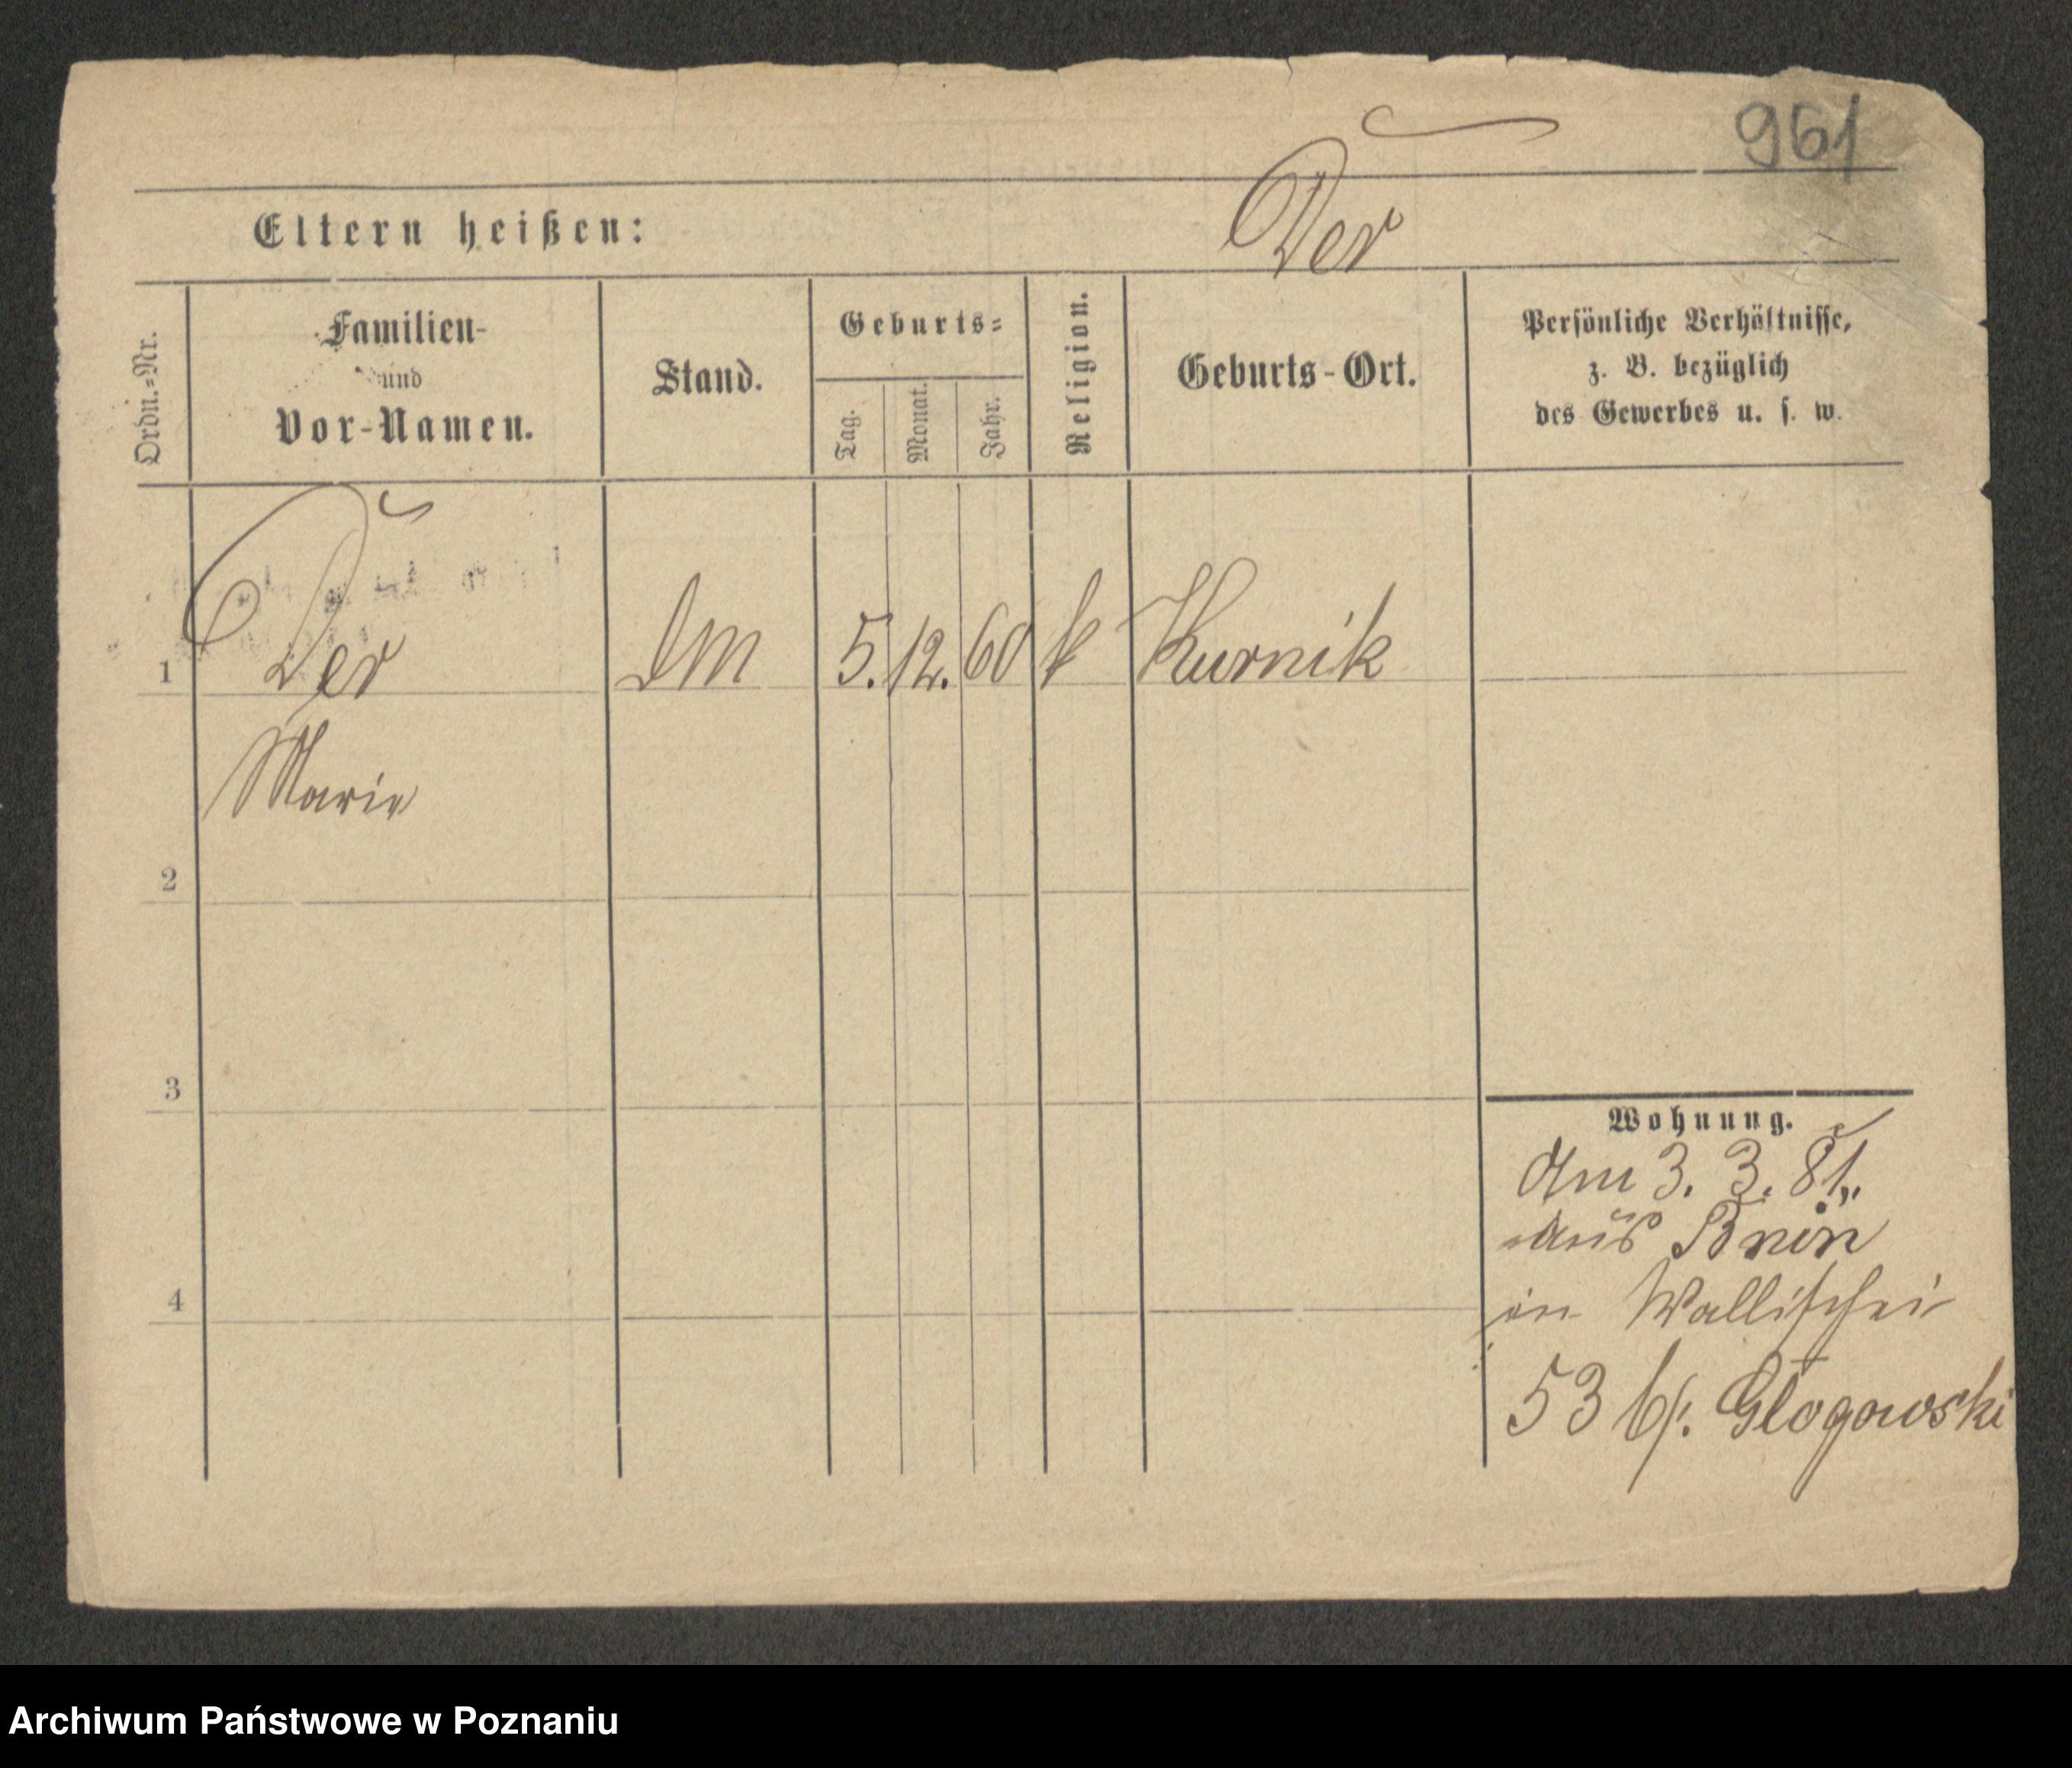 961
Eltern heißen:
Der
Ordn.-Nr.
Familien-
und
Vor-Namen.
Stand.
Geburts-
Tag.
Monat.
Jahr.
Religion.
Geburts-Ort.
Persönliche Verhältnisse,
z. B. bezüglich
des Gewerbes u. s. w.
1 Der DM 5. 12. 60 k Kurnik
Marie
2
3
4
Wohnung.
Am 3. 3. 81.
aus Bnin
in Wallischei
53 b/. Głogowski
Archiwum Państwowe w Poznaniu